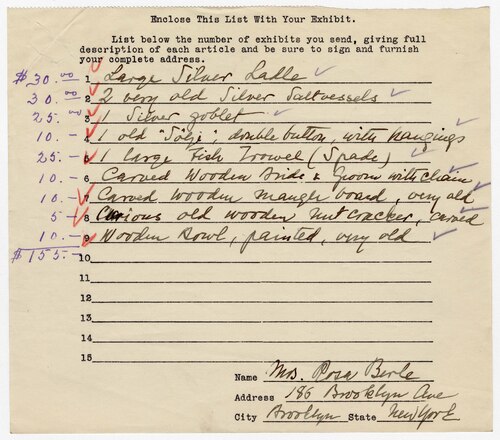 Enclose This List With Your Exhibit.
List below the number of exhibits you send, giving full
description of each article and be sure to sign and furnish
your complete address.
$30.00 1 Large Silver Ladle
30.00 2 2 very old Silver Saltvessels
25.00 3 1 Silver goblet
10.- 4 1 old "Sölje", double button, with hangings
25.- 5 1 large Fish Trowel (Spade)
10.- 6 Carved Wooden Bride & Groom with chain
10.- 7 Carved Wooden Mangle board, very old
5- 8 Curious old wooden Nutcracker, carved
10.- 9 Wooden Bowl, painted, very old
$155.- 10
11
12
13
14
15
Name Mrs. Rosa Berle
Address 186 Brooklyn Ave
City Brooklyn State New York